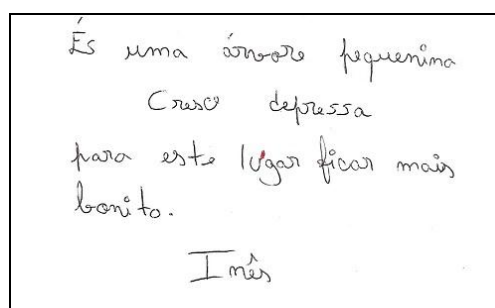 És uma árvore pequenina
Cresce depressa
para este lugar ficar mais
bonito.
Inês